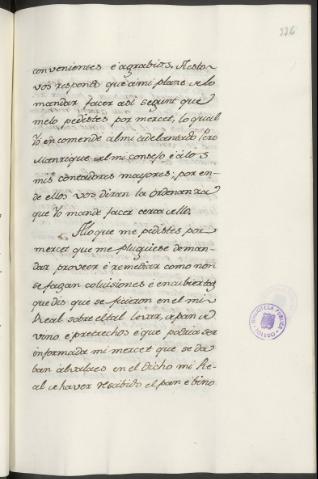 226
convenientes é agrabios, A esto
vos respondo que a mi plase de lo
mandar facer así segunt que
melo pedistes por mercet, lo qual
Yo encomende al mi adelantado Pero
Manrique é al mi consejo é á los
mis contadores mayores: por en-
de ellos vos diran la ordenanza
que Yo mande facer cerca ello.
Alo que me pedistes por
mercet que me pluguiese de man-
dar proveer é remediar como non
se fagan colusiones é encubiertas
que dis que se facieron en el mi
Real sobre el tal levar, é pan é
vino é pertrechos é que podria ser
informada mi mercet que se da
ban alvalaes en el dicho mi Re-
al de haver rescibido el pan é bino
BIBLIOTECA PUBLICA
TOLEDO